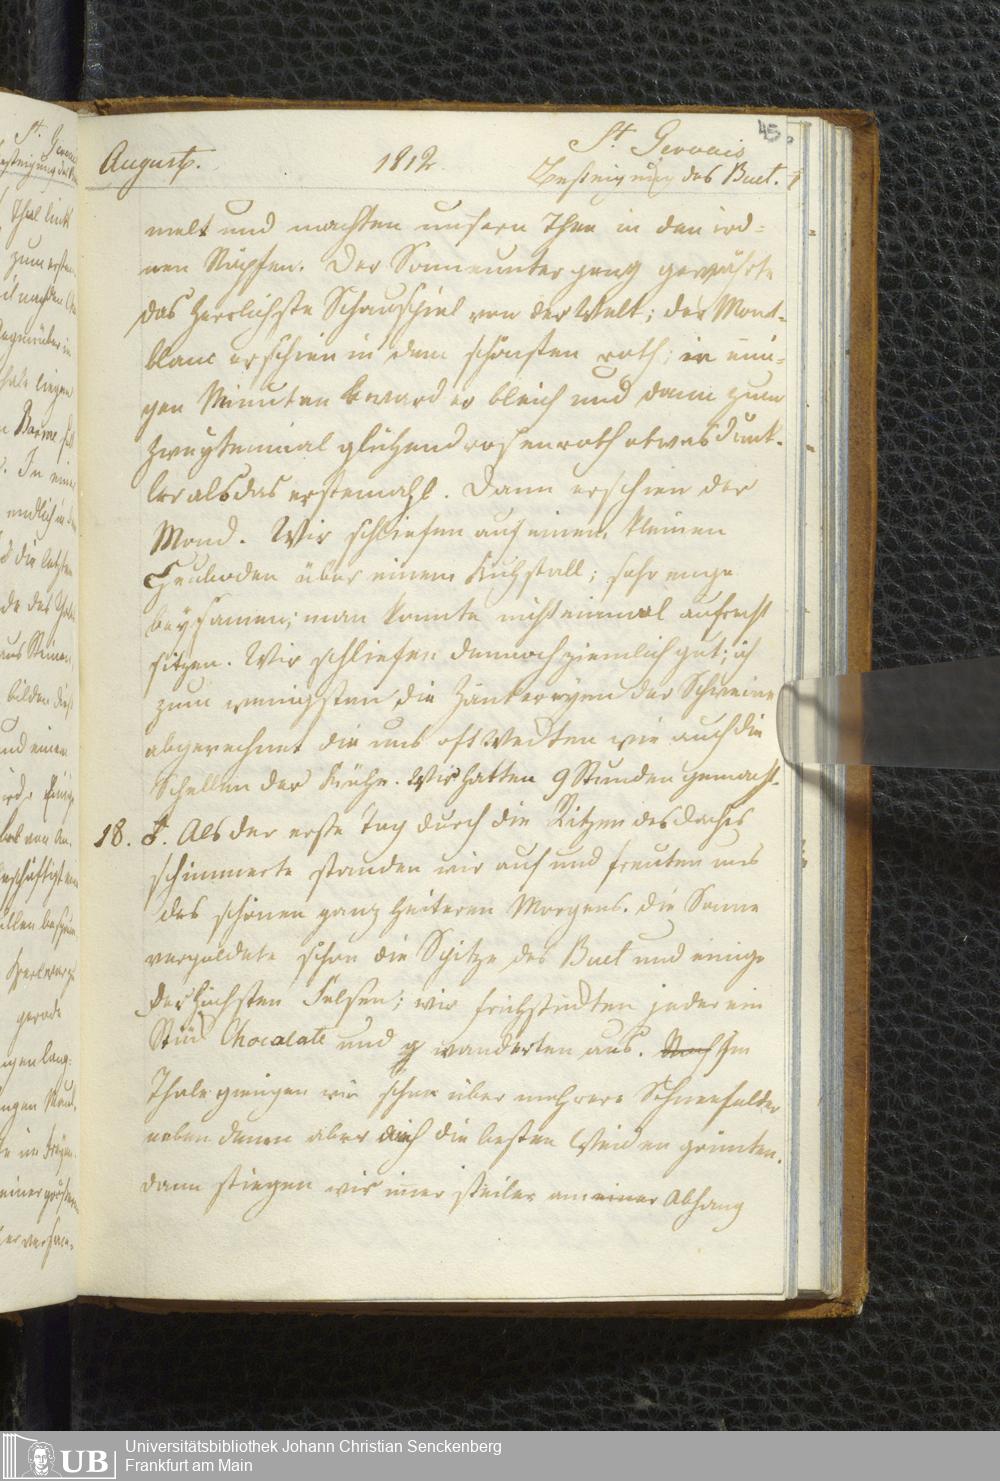 45.
August. 1812 St. Gervais
Besteigung des Buet.
melt und machten unsern Thee in den ird=
nen Näpfen. Der Sonnenuntergang gewährte
das herrlichste Schauspiel von der Welt; der Mont=
blanc erschien in dem schönsten roth; in eini=
gen Minuten ward er bleich und dann zum
zweytenmal glühend rosenroth etwas dunk=
ler als das erstemahl. Dann erschien der
Mond. Wir schliefen auf einem kleinen
Heuboden über einem Kuhstall; sehr enge
beysamen; man konnte nicht einmal aufrecht
sitzen. Wir schliefen dennoch ziemlich gut; ich
zum wenigsten die Zänkereyen der Schweine
abgerechnet die uns oft weckten wie auch die
Schellen der Kühe. Wir hatten 9 Stunden gemacht.
18. Als der erste Tag durch die Ritzen des Daches
schimmerte standen wir auf und freuten uns
des schönen ganz heiteren Morgens. Die Sonne
vergoldete schon die Spitze des Buet und einige
der höchsten Felsen; wir frühstückten jeder ein
Stück Chocolate und wanderten aus. Im
Thale giengen wir schon über mehrere Schneefelder
neben denen aber auch die besten Weiden grünten.
Dann stiegen wir imer steiler am einer Abhang
Universitätsbibliothek Johann Christian Senckenberg
UB Frankfurt am Main